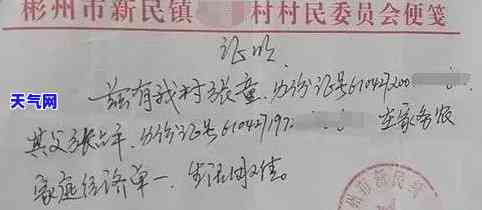 彬州市新民镇 村村民委员会便笺
证明
兹有我村张童，身份证号610427200
其父张占军，身份证号610427197 在家务农
家庭经济单一，生活困难。
天气网
州市新民镇